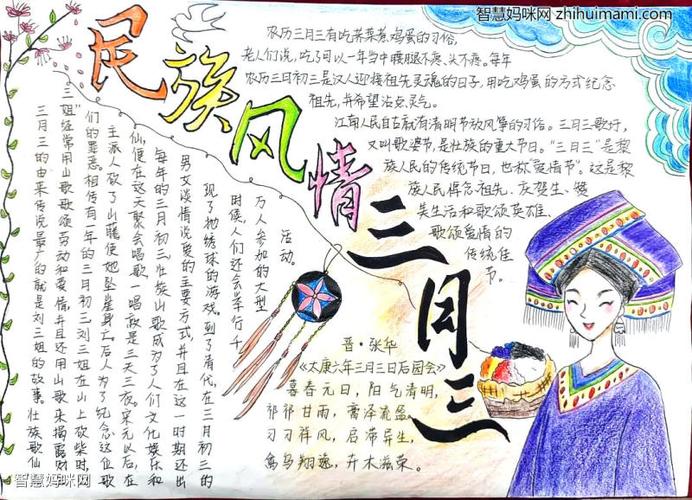 智慧妈咪网 zhihuimami.com
民族风情三月三
农历三月三有吃荠菜煮鸡蛋的习俗,
老人们说,吃了可以一年当中腰腿不疼、头不疼。每年
农历三月初三是汉人迎接祖先灵魂的日子,用吃鸡蛋的方式纪念
祖先,并希望沾点灵气。
江南人民自古就有清明节放风筝的习俗。三月三歌圩,
又叫歌婆节,是壮族的重大节日。“三月三”是黎
族人民的传统节日,也称“爱情节”。这是黎
族人民悼念祖先、庆贺生、赞
美生活和歌颂英雄、
歌颂爱情的
传统佳
节。
三月三的由来传说最广的就是刘三姐的故事。壮族歌仙
三姐”经常用山歌歌颂劳动和爱情,并且还用山歌来揭露财
们的罪恶。相传有一年的三月初三,刘三姐在山上砍柴时,
主派人砍了山藤使她坠崖身亡。后人为了纪念这位歌
仙,便在这天聚会唱歌一唱就是三天三夜。宋元以后,在
每年的三月初三壮族山歌成为了人们文化娱乐和
男女谈情说爱的主要方式,并且在这一时期还出
现了抛绣球的游戏。到了清代,在三月初三的
时候,人们还会举行千
万人参加的大型
活动。
晋·张华
《太康六年三月三日后园会》
暮春元日,阳气清明,
祁祁甘雨,膏泽流盈。
习习祥风,启滞导生,
禽鸟翔逸,卉木滋荣。
智慧妈咪网